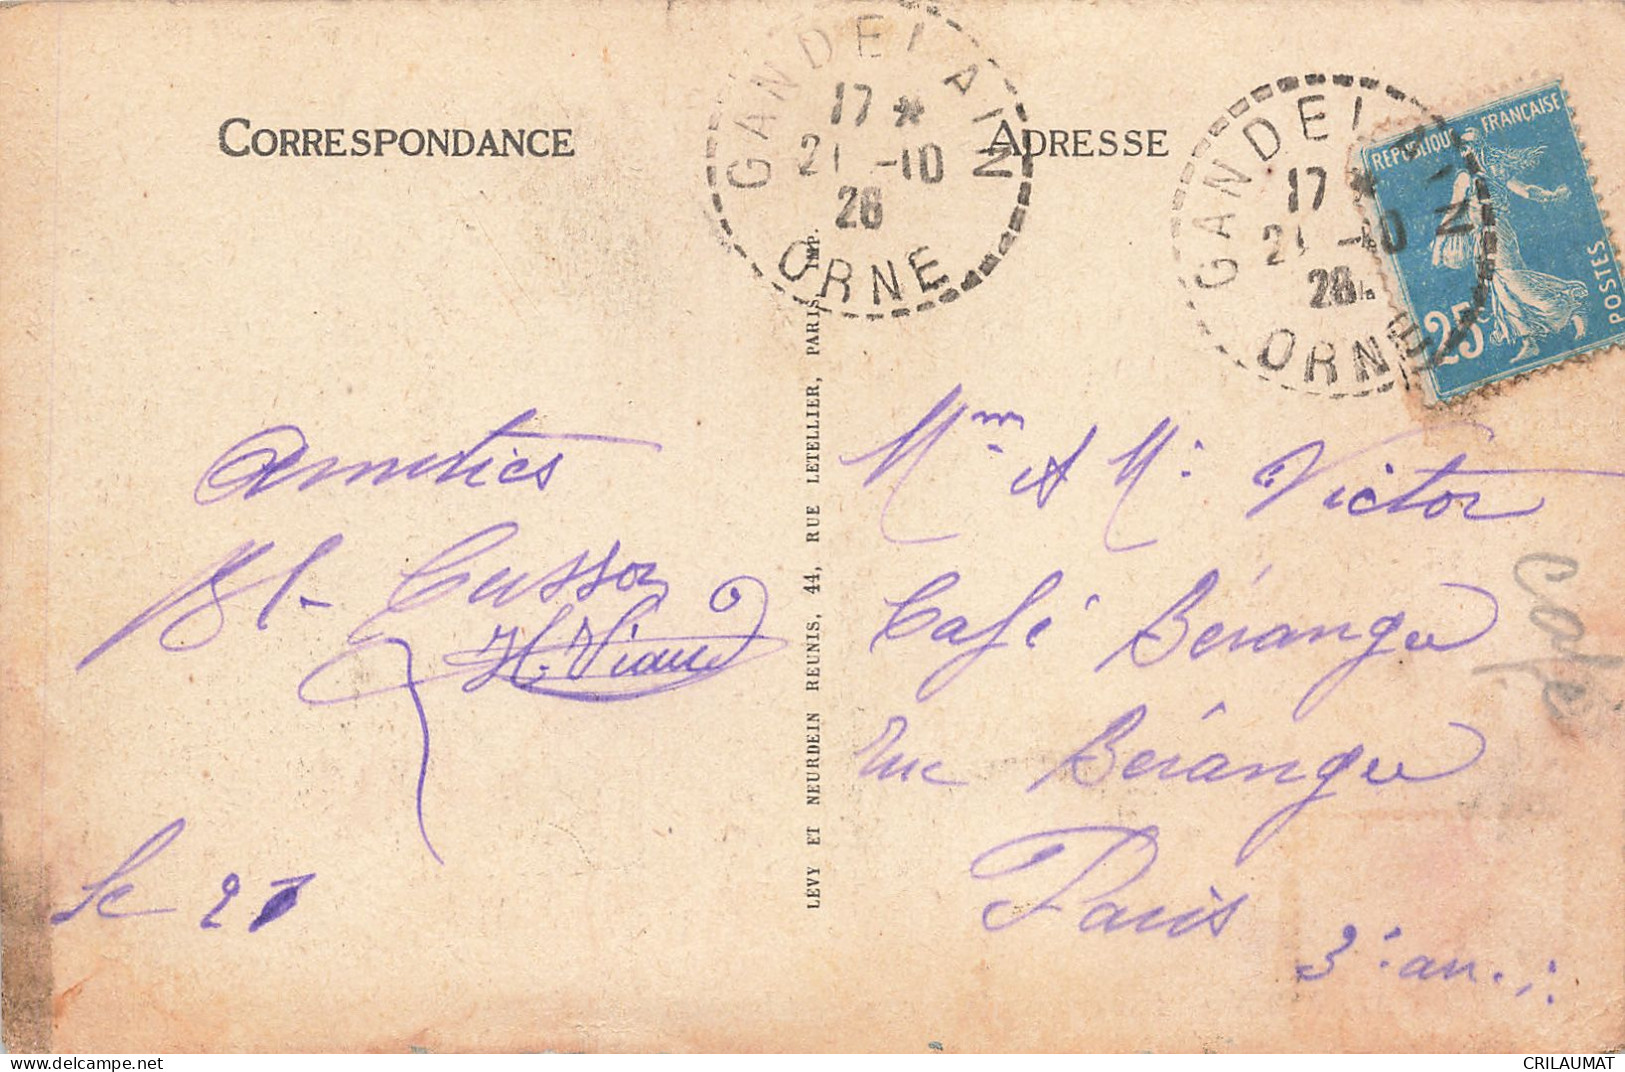 CORRESPONDANCE
ADRESSE
GANDELAIN
17 *
21 -10
26
ORNE
GANDELAIN
17 *
21 -10
26
ORNE
REPUBLIQUE FRANÇAISE
25c
POSTES
Amitiés
Cusson
H. Viaud
le 21
LEVY ET NEURDEIN REUNIS, 44, RUE LETELLIER, PARIS, IMP.
Mme et Mr Victor
Café Béranger
rue Béranger
Paris
3e arr.
Café
CRILAUMAT